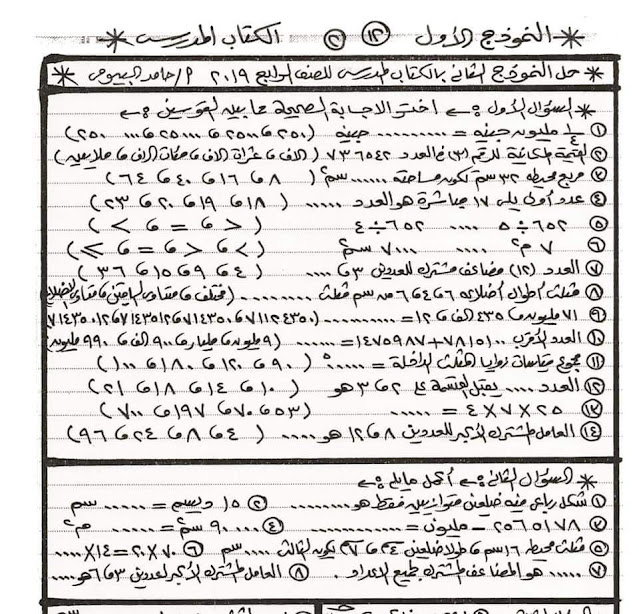 * النموذج الأول (١٢) (٢) الكتاب المدرسى *
* حل النموذج الثانى بالكتاب المدرسى للصف الرابع ٢٠١٩ م/حامد البيومى *
* السؤال الأول :- اختر الاجابة الصحيحة مما بين القوسين :-
① ١/٤ مليون جنيه = ......... جنيه (٢٥٠ ، ٢٥٠٠ ، ٢٥٠٠٠ ، ٢٥٠٠٠٠)
② القيمة المكانية للرقم (٣) فى العدد ٧٣٦٥٤٢ (الاف ، عشرات الاف ، مئات الاف ، ملايين)
③ مربع محيطه ٣٢ سم تكون مساحته ...... سم٢ (٨ ، ١٦ ، ٤٠ ، ٦٤)
④ عدد أولى يلى ١٧ مباشرة هو العدد ...... (١٨ ، ١٩ ، ٢٠ ، ٢٣)
⑤ ٦٥٢ ÷ ٥ ..... ٦٥٢ ÷ ٤ (> ، = ، <)
⑥ ٧ م٢ ..... ٧٠٠٠ سم٢ (< ، > ، = ، ≥)
⑦ العدد (١٢) مضاعف مشترك للعددين ٣ ، .... (٤ ، ٩ ، ١٥ ، ٣٦)
⑧ مثلث أطوال أضلاعه ٦ ، ٤ ، ٦ سم مثلث ........ (مختلف ، متساوى الساقين ، متساوى الأضلاع)
⑨ ٧١ مليون ، ٤٣٥ الف ، ١٢ =
⑩ العدد الأقرب ٧٨١٥١٠٠ + ١٤٧٥٩٨٧ = ......... (٩ مليون ، مليار ، ٩٠٠ الف ، ٩٩٠ مليون
⑪ مجموع قياسات زوايا المثلث الداخلة = ......° (٩٠ ، ١٢٠ ، ١٨٠ ، ١٠٠)
⑫ العدد .... يقبل القسمة على ٢ ، ٣ هو (١٠ ، ١٤ ، ١٨ ، ٢١)
⑬ ٢٥ × ٧ × ٤ = ..... (٥٣ ، ٧٠ ، ١٩٧ ، ٧٠٠)
⑭ العامل المشترك الأكبر للعددين ٨ ، ١٢ هو ..... (٤ ، ٨ ، ٢٤ ، ٩٦)
* السؤال الثانى :- أكمل مايلى :-
① شكل رباعى فيه ضلعين متوازيين فقط هو ......... ② ١٥ ديسم = ...... سم
③ ٢٥٦٥١٧٨ - مليون = ......... ④ ٩٠٠٠٠ سم٢ = ..... م٢
⑤ مثلث محيطه ١٦ سم ، طولا ضلعين ٤ ، ٧ يكون الثالث .... سم ⑥ ٧٠ × ٢ = ١٤ × ....
⑦ ..... هو المضاعف المشترك لجميع الاعداد . ⑧ العامل المشترك الأكبر لعددين ٣ ، ٦ هو ....